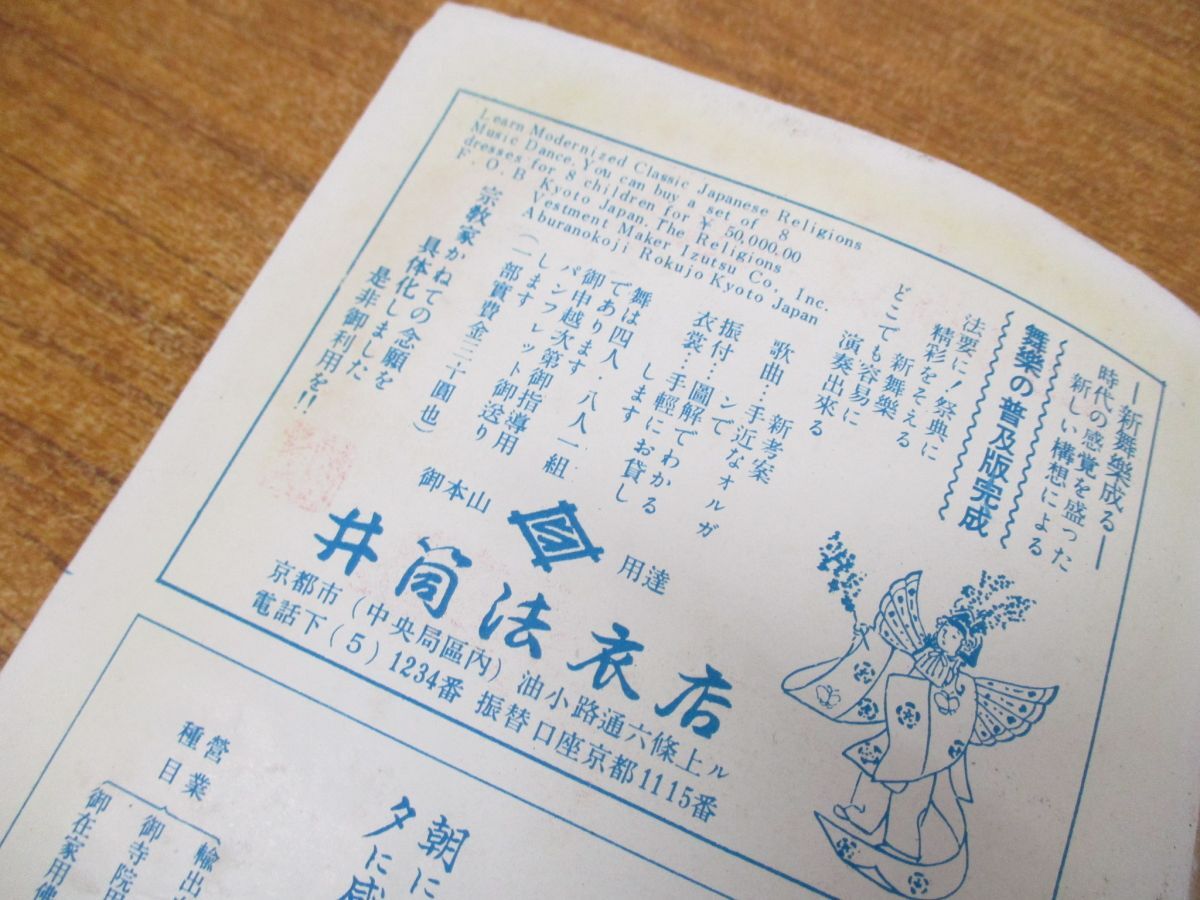 Learn Modernized Classic Japanese Religions
Music Dance. You can buy a set of 8
dresses for 8 children for ¥ 50,000.00
F. O. B Kyoto Japan. The Religions
Vestment Maker Izutsu Co, Inc.
Aburanokoji Rokujo Kyoto Japan
―新舞樂成る―
時代の感覚を盛った
新しい構想による
舞樂の普及版完成
法要に!祭典に
精彩をそえる
新舞樂
どこでも容易に
演奏出來る
歌曲…新考案
手近なオルガンで
振付…圖解でわかる
衣裳…手輕にお貸し
します
舞は四人.八人一組
であります
御申越次第御指導用
パンフレット御送り
します
(一部實費金三十圓也)
宗教家かねての念願を
具体化しました
是非御利用を!!
御本山
用達
井筒法衣店
京都市(中央局區內)油小路通六條上ル
電話下(5)1234番 振替口座京都1115番
営業
種目
輸出
御寺院用
御在家用佛
朝に
夕に感